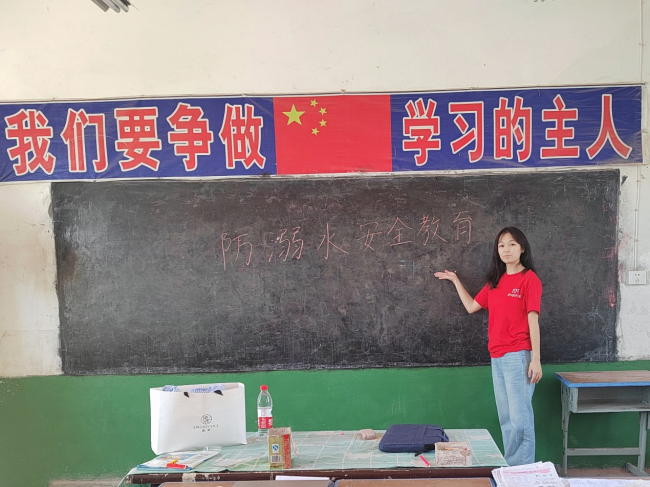 我们要争做学习的主人
防溺水安全教育